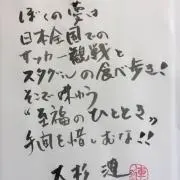 ぼくの夢は
日本全国での
サッカー観戦と
スタグルの食べ歩き!
そこで味わう
"至福のひととき"
手間を惜しむな!!
大杉 漣
漣